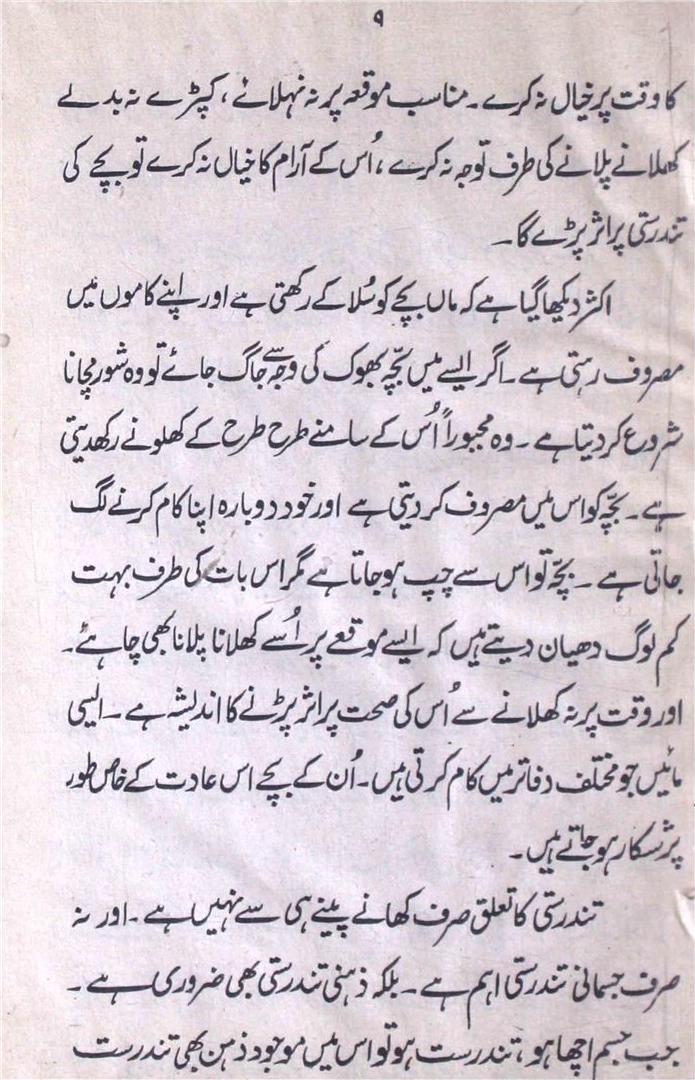 ۹
کا وقت پر خیال نہ کرے ۔ مناسب موقعہ پر نہ نہلائے ، کپڑے نہ بدلے
کھلانے پلانے کی طرف توجہ نہ کرے ، اُس کے آرام کا خیال نہ کرے تو بچے کی
تندرستی پر اثر پڑے گا ۔
اکثر دیکھا گیا ہے کہ ماں بچے کو سُلا کے رکھتی ہے اور اپنے کاموں میں
مصروف رہتی ہے ۔ اگر ایسے میں بچّہ بھوک کی وجہ سے جاگ جائے تو وہ شور مچانا
شروع کر دیتا ہے ۔ وہ مجبوراً اُس کے سامنے طرح طرح کے کھلونے رکھدیتی
ہے ۔ بچّہ کو اس میں مصروف کر دیتی ہے اور خود دوبارہ اپنا کام کرنے لگ
جاتی ہے ۔ بچّہ تو اس سے چپ ہو جاتا ہے مگر اس بات کی طرف بہت
کم لوگ دھیان دیتے ہیں کہ ایسے موقعے پر اُسے کھلانا پلانا بھی چاہئے ۔
اور وقت پر نہ کھلانے سے اُس کی صحت پر اثر پڑنے کا اندیشہ ہے ۔ ایسی
مائیں جو مختلف دفاتر میں کام کرتی ہیں ۔ اُن کے بچے اس عادت کے خاص طور
پر شکار ہو جاتے ہیں ۔
تندرستی کا تعلق صرف کھانے پینے ہی سے نہیں ہے ۔ اور نہ
صرف جسمانی تندرستی اہم ہے ۔ بلکہ ذہنی تندرستی بھی ضروری ہے ۔
جب جسم اچھا ہو ، تندرست ہو تو اس میں موجود ذہن بھی تندرست